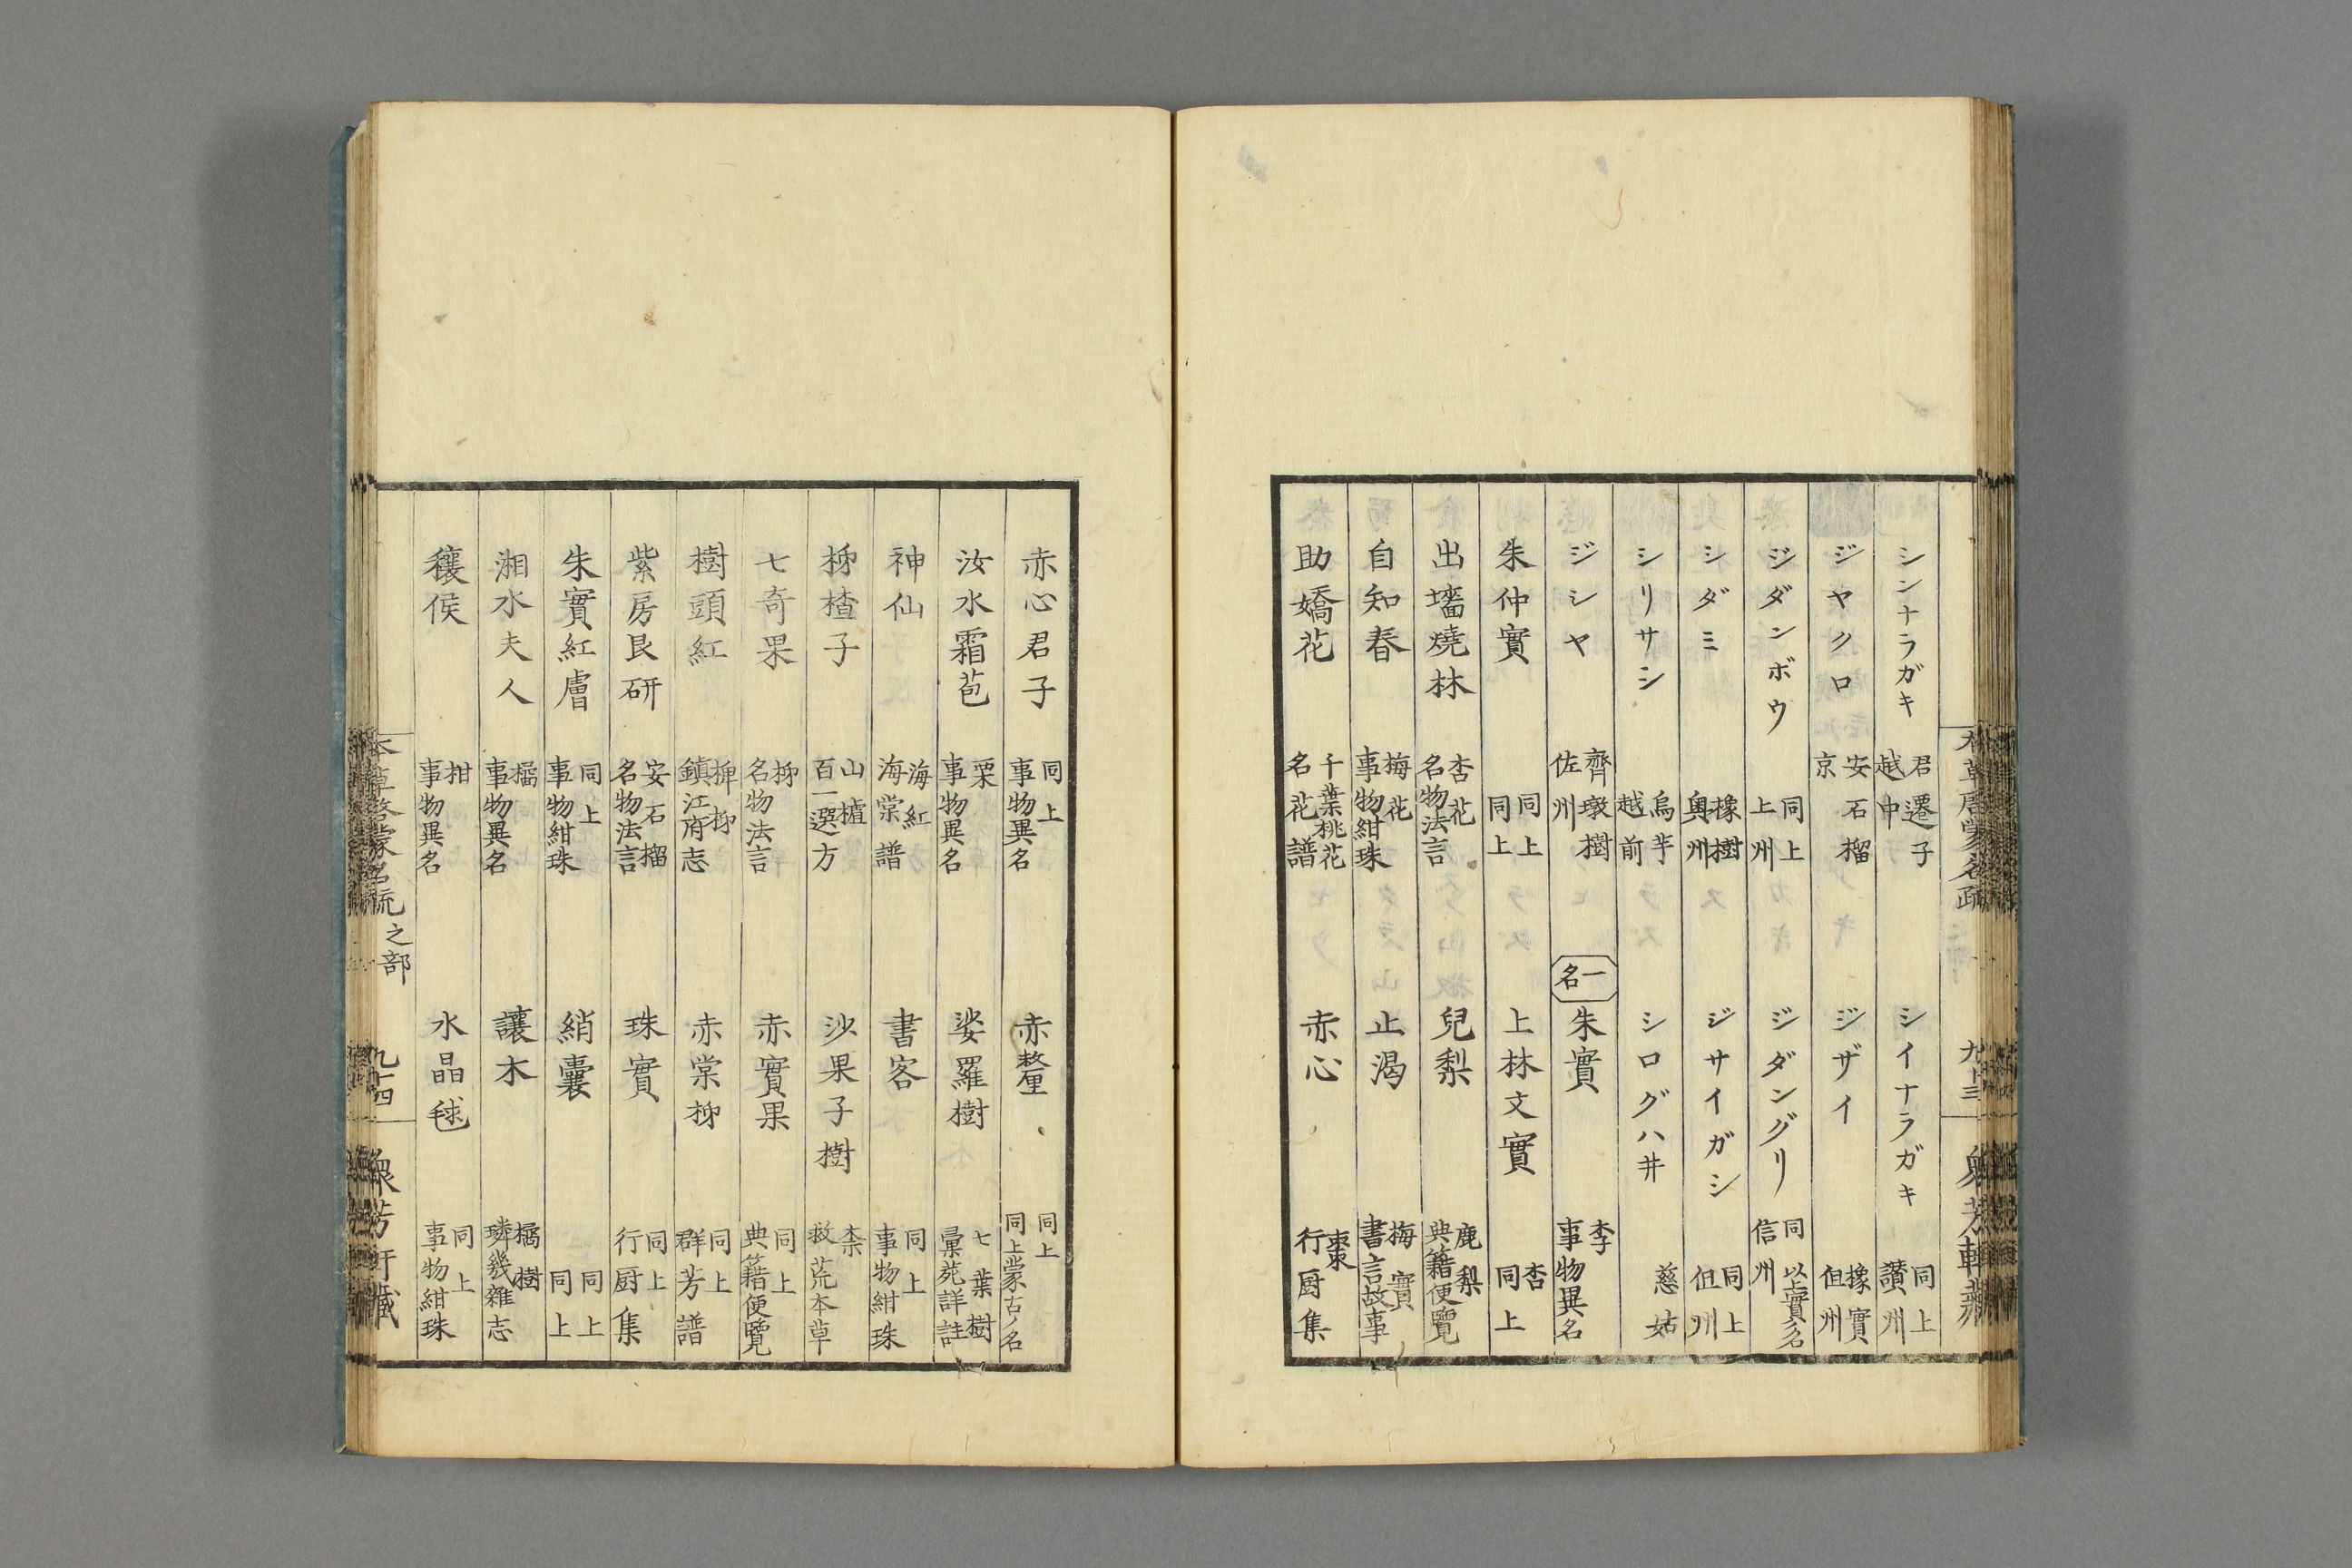 シンナラガキ 君遷子 越中 シイナラガキ 同上 讚州
ジヤクロ 安石榴 京 ジザイ 橡實 但州
ジダンボウ 同上 上州 ジダングリ 同 以上實ノ名 信州
シダミ 橡樹 奥州 ジサイガシ 同上 但州
シリサシ 烏芋 越前 シログハ井 慈姑
ジシヤ 齊墩樹 佐州 一名 朱實 李 事物異名
朱仲實 同上 同上 上林文實 杏 同上
出墻燒林 杏花 名物法言 兒梨 鹿梨 典籍便覽
自知春 梅花 事物紺珠 止渴 梅實 書言故事
助嬌花 千葉桃花 名花譜 赤心 棗 行厨集
九十三
赤心君子 同上 事物異名 赤 同上 同上蒙古ノ名
汝水霜苞 栗 事物異名 娑羅樹 七葉樹 彙苑詳註
神仙 海紅 海棠譜 書客 同上 事物紺珠
柹楂子 山樝 百一選方 沙果子樹 柰 救荒本草
七奇果 柹 名物法言 赤實果 同上 典籍便覽
樹頭紅 椑柹 鎮江府志 赤棠柹 同上 群芳譜
紫房艮研 安石榴 名物法言 珠實 同上 行厨集
朱實紅膚 同上 事物紺珠 綃囊 同上 同上
湘水夫人 橘 事物異名 讓木 橘樹 璘幾雜志
穰侯 柑 事物異名 水晶毬 同上 事物紺珠
本草啓蒙名疏 之部 九十四 衆芳軒藏